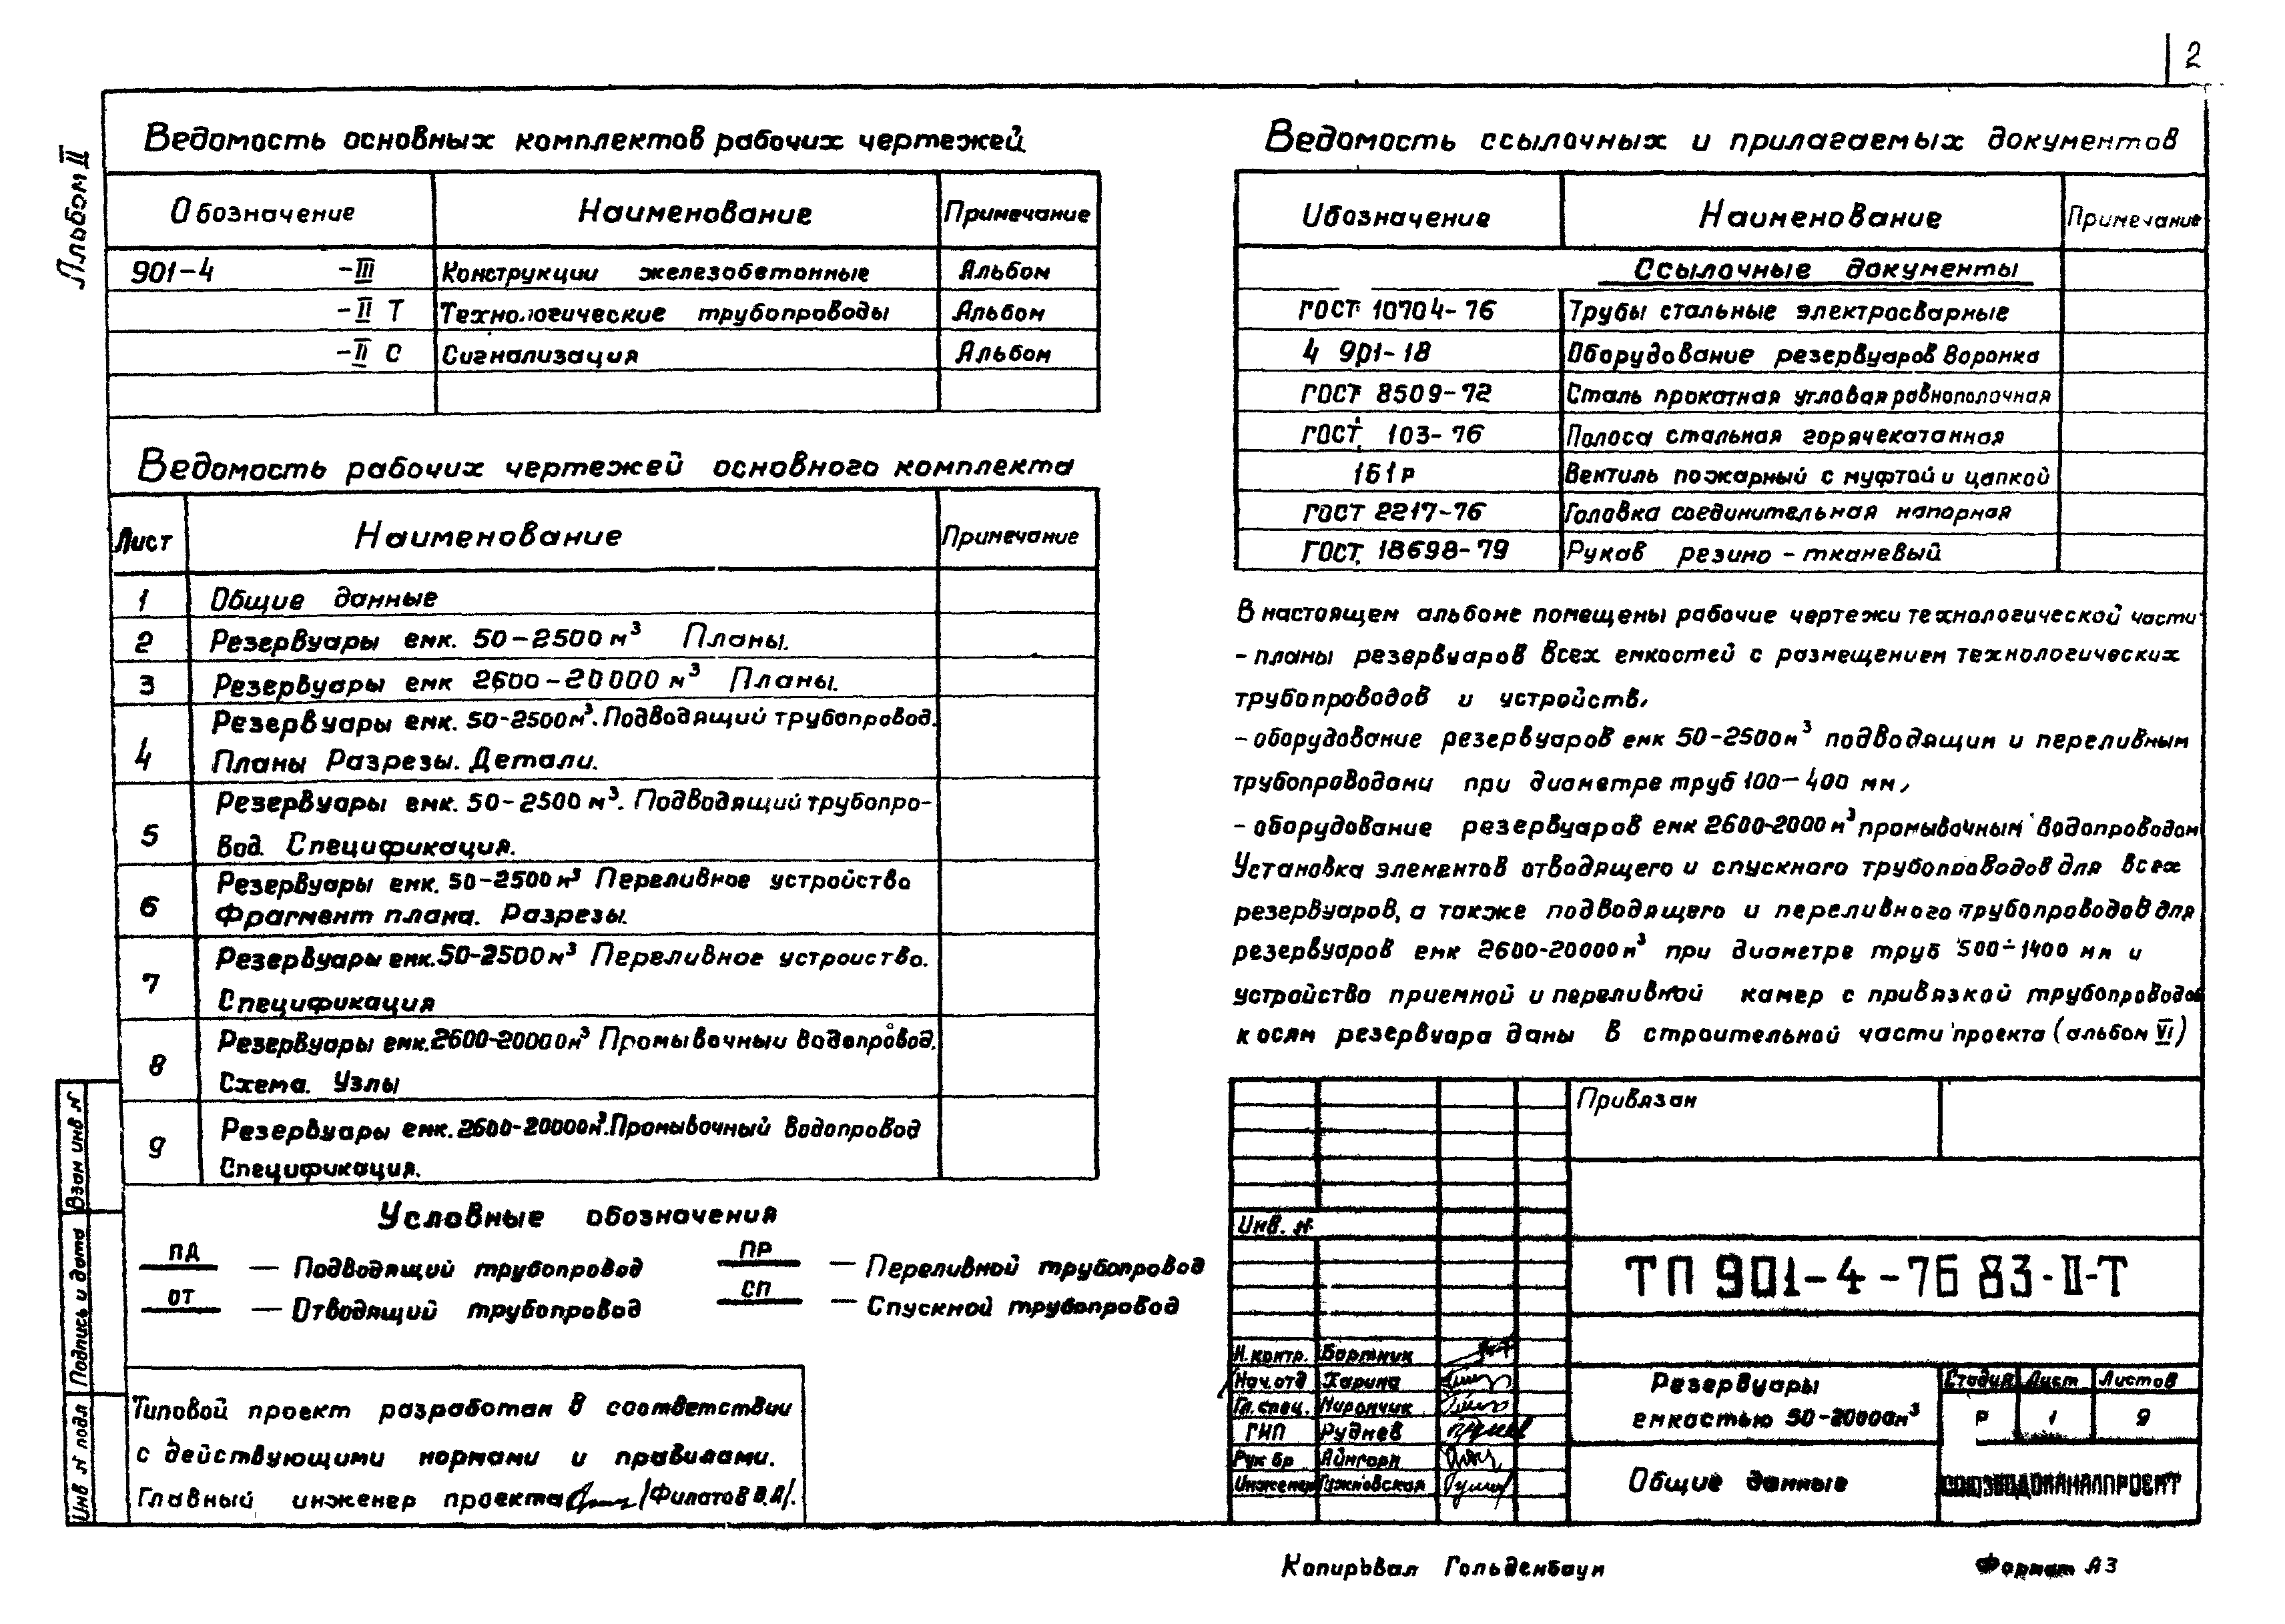 2
Альбом II
Ведомость основных комплектов рабочих чертежей
Обозначение Наименование Примечание
901-4 -III Конструкции железобетонные Альбом
-II Т Технологические трубопроводы Альбом
-II С Сигнализация Альбом
Ведомость рабочих чертежей основного комплекта
Лист Наименование Примечание
1 Общие данные
2 Резервуары емк. 50-2500 м³ Планы.
3 Резервуары емк 2600-20000 м³ Планы.
4 Резервуары емк. 50-2500м³. Подводящий трубопровод.
Планы Разрезы. Детали.
5 Резервуары емк. 50-2500 м³. Подводящий трубопро-
вод. Спецификация.
6 Резервуары емк. 50-2500м³ Переливное устройство
Фрагмент плана. Разрезы.
7 Резервуары емк. 50-2500м³ Переливное устроиство.
Спецификация
8 Резервуары емк. 2600-20000м³ Промывочныи водопровод.
Схема. Узлы
9 Резервуары емк. 2600-20000м³. Промывочный водопровод
Спецификация.
Условные обозначения
ПД — Подводящий трубопровод
ОТ — Отводящий трубопровод
ПР — Переливной трубопровод
СП — Спускной трубопровод
Типовой проект разработан в соответствии
с действующими нормами и правилами.
Главный инженер проекта /Филатов В.А/.
Взам инв №
Подпись и дата
Инв № подл
Ведомость ссылочных и прилагаемых документов
Обозначение Наименование Примечание
Ссылочные документы
ГОСТ 10704-76 Трубы стальные электросварные
4 901-18 Оборудование резервуаров Воронка
ГОСТ 8509-72 Сталь прокатная угловая равнополочная
ГОСТ 103-76 Полоса стальная горячекатанная
1Б1р Вентиль пожарный с муфтой и цапкой
ГОСТ 2217-76 Головка соединительная напорная
ГОСТ 18698-79 Рукав резино-тканевый
В настоящем альбоме помещены рабочие чертежи технологической части
- планы резервуаров всех емкостей с размещением технологических
трубопроводов и устройств,
- оборудование резервуаров емк 50-2500м³ подводящим и переливным
трубопроводами при диаметре труб 100-400 мм,
- оборудование резервуаров емк 2600-2000 м³ промывочным водопроводом
Установка элементов отводящего и спускного трубопроводов для всех
резервуаров, а также подводящего и переливного трубопроводов для
резервуаров емк 2600-20000м³ при диаметре труб 500÷1400 мм и
устройство приемной и переливной камер с привязкой трубопроводов
к осям резервуара даны в строительной части проекта (альбом VI)
Привязан
Инв. №
ТП 901-4-76 83-II-Т
Н.контр. Бортник
Нач.отд Харина
Гл.спец. Мирончик
ГИП Руднев
Рук бр Айнгорн
Инженер
Резервуары
емкостью 50-20000м³
Стадия Лист Листов
Р 1 9
Общие данные
СОЮЗВОДОКАНАЛПРОЕКТ
Копировал Гольденбаум
Формат А3